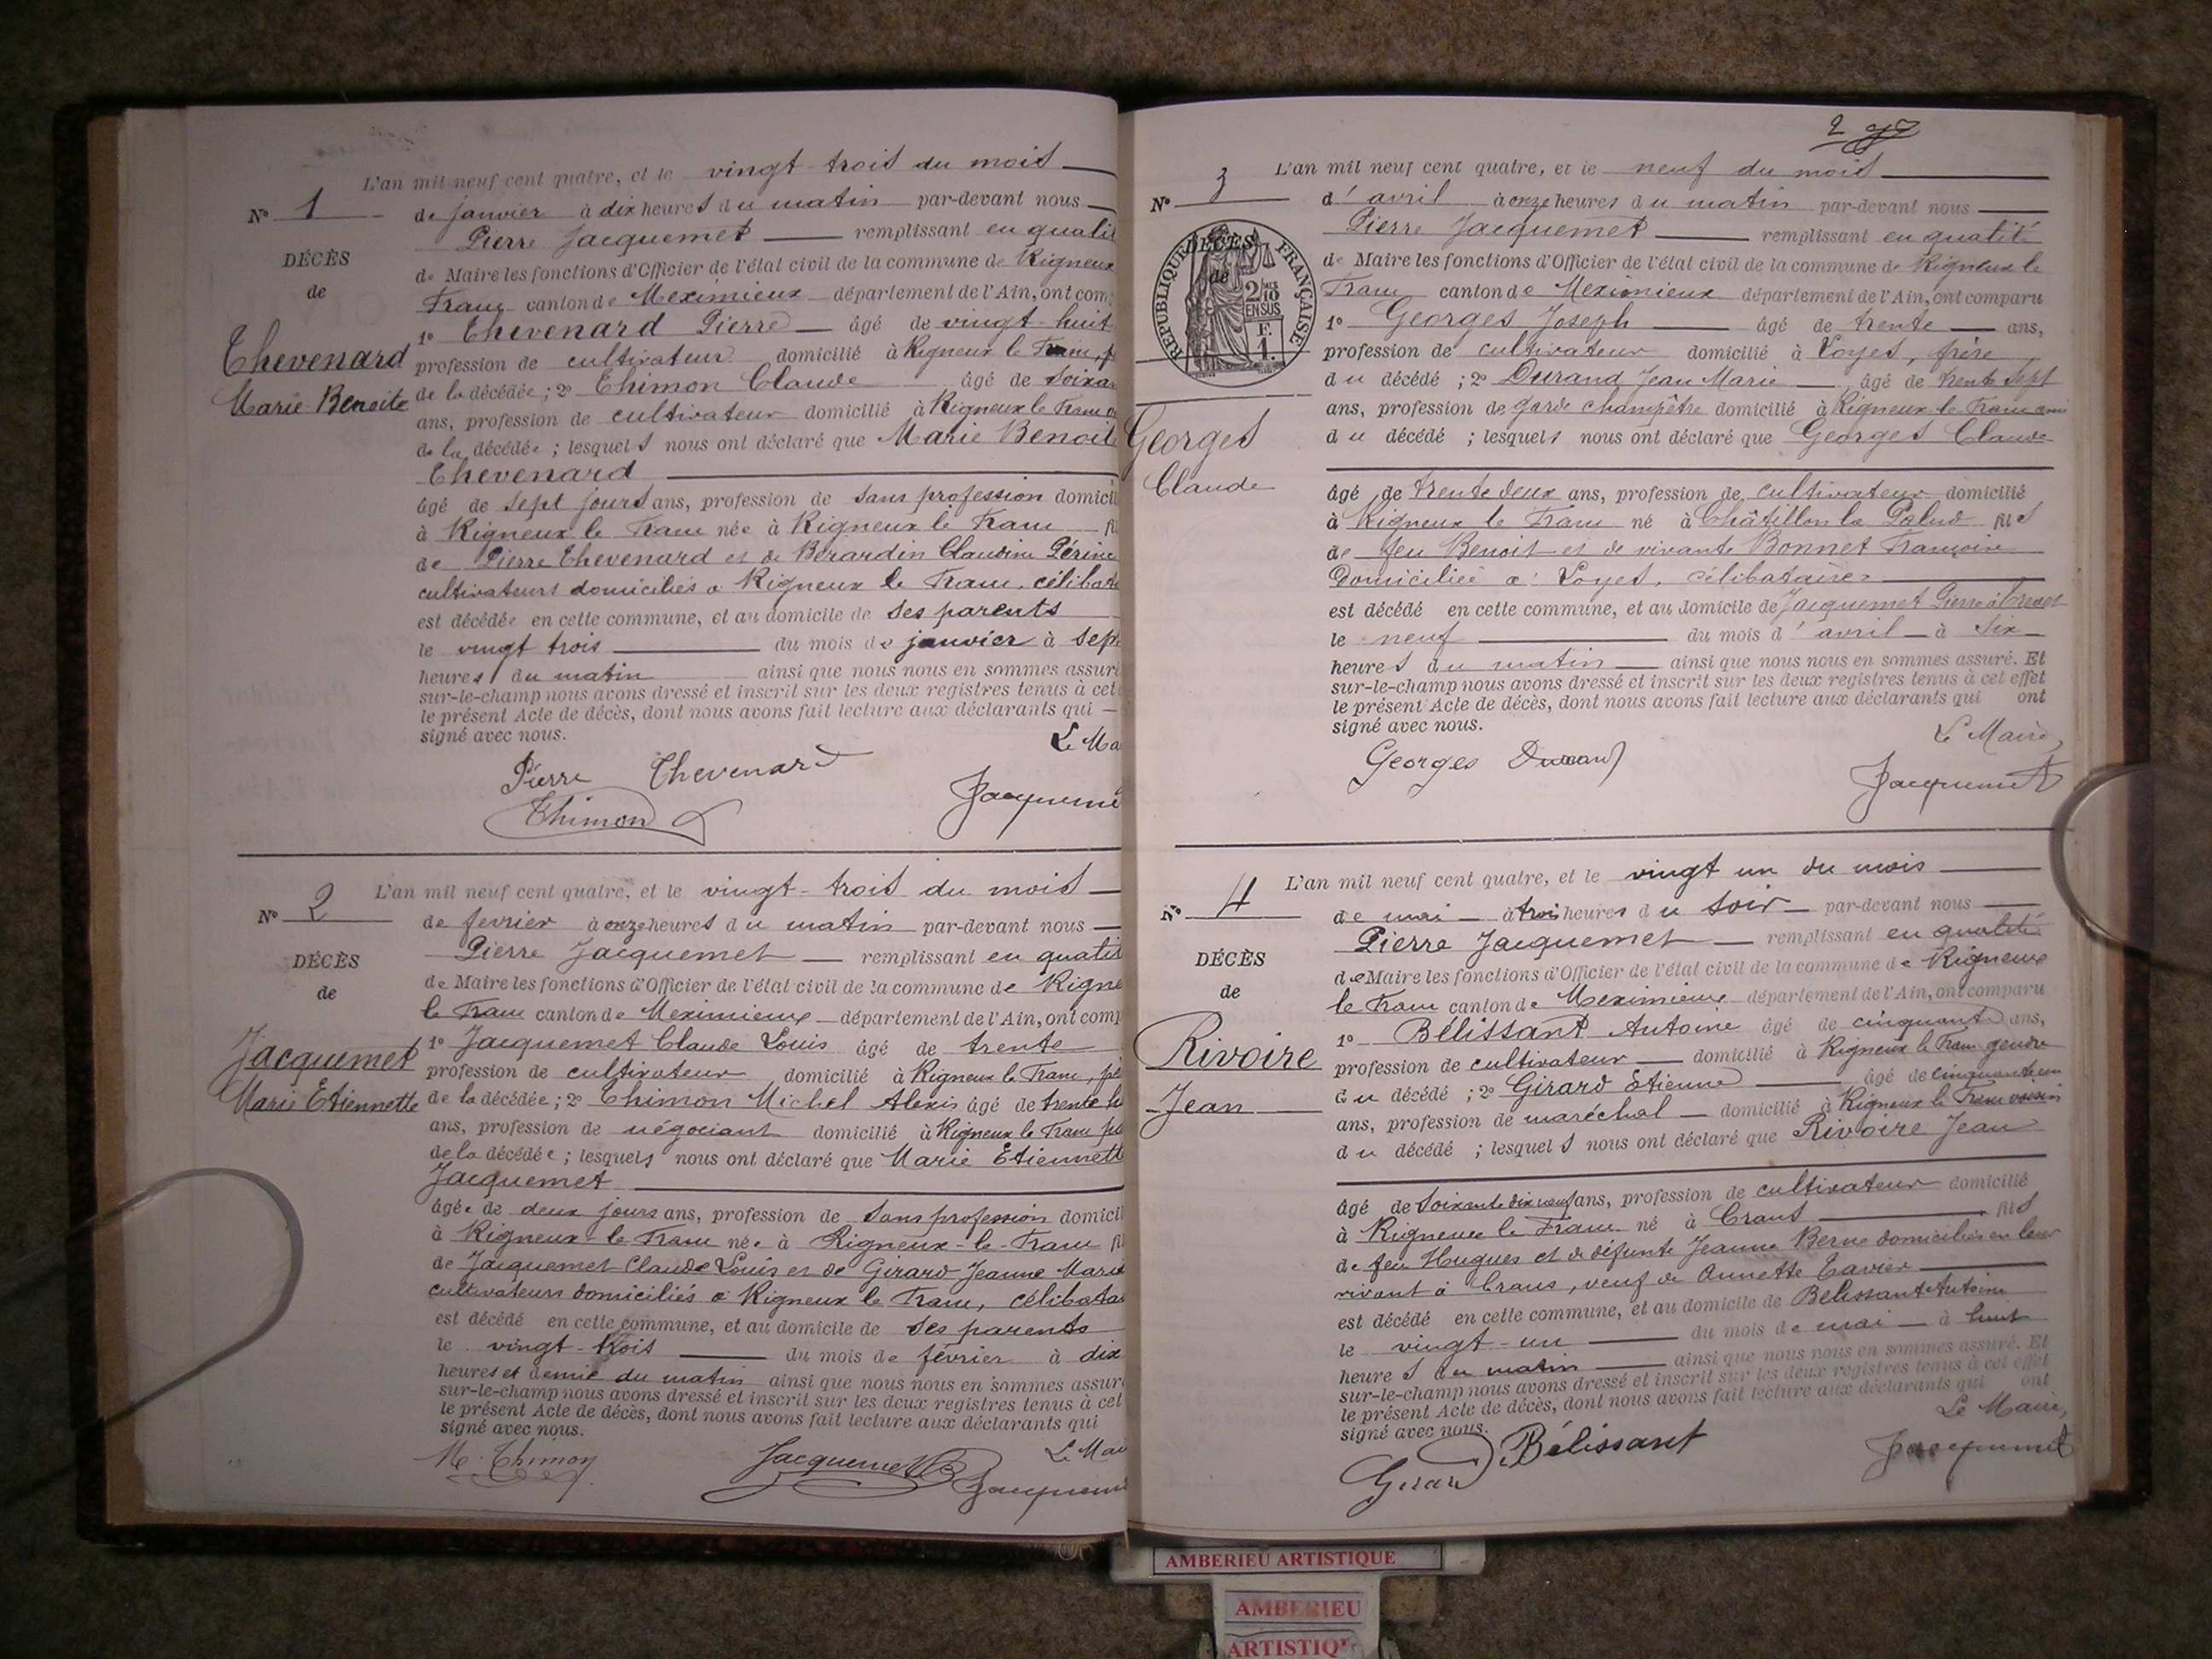 L'an mil neuf cent quatre, et le vingt-trois du mois
N° 1
de janvier à dix heures du matin par-devant nous
Pierre Jacquemet remplissant en qualit
DÉCÈS
de
de Maire les fonctions d'Officier de l'état civil de la commune de Rigneux
Franc canton de Meximieux département de l'Ain, ont com
1° Thevenard Pierre âgé de vingt-huit
Thevenard
Marie-Benoite
profession de cultivateur domicilié à Rigneux le Franc,
de la décédée ; 2° Thimon Claude âgé de soixa
ans, profession de cultivateur domicilié à Rigneux le Franc
de la décédée ; lesquels nous ont déclaré que Marie Benoit
Thevenard
âgé de sept jours ans, profession de sans profession domicil
à Rigneux le Franc née à Rigneux le Franc fil
de Pierre Thevenard et de Bérardin Claudine Périne
cultivateurs domiciliés à Rigneux le Franc, célibata
est décédée en cette commune, et au domicile de ses parents
le vingt trois du mois de janvier à sep
heures du matin ainsi que nous nous en sommes assuré
sur-le-champ nous avons dressé et inscrit sur les deux registres tenus à cet
le présent Acte de décès, dont nous avons fait lecture aux déclarants qui
signé avec nous.
Le Ma
Pierre Thevenard
Thimon
Jacqueme
L'an mil neuf cent quatre, et le vingt-trois du mois
N° 2
de fevrier à onze heures du matin par-devant nous
Pierre Jacquemet remplissant en qualit
DÉCÈS
de
de Maire les fonctions d'Officier de l'état civil de la commune de Rigne
le Franc canton de Meximieux département de l'Ain, ont comp
1° Jacquemet Claude Louis âgé de trente
Jacquemet
Marie Etiennette
profession de cultivateur domicilié à Rigneux le Franc, pè
de la décédée ; 2° Thimon Michel Alexis âgé de trente
ans, profession de négociant domicilié à Rigneux le Franc
de la décédée ; lesquels nous ont déclaré que Marie Etiennett
Jacquemet
âgée de deux jours ans, profession de sans profession domicil
à Rigneux-le-Franc née à Rigneux-le-Franc fil
de Jacquemet Claude Louis et de Girard Jeanne Marie
cultivateurs domiciliés à Rigneux le Franc, célibata
est décédé en cette commune, et au domicile de ses parents
le vingt-trois du mois de février à dix
heures et demie du matin ainsi que nous nous en sommes assuré
sur-le-champ nous avons dressé et inscrit sur les deux registres tenus à cet
le présent Acte de décès, dont nous avons fait lecture aux déclarants qui
signé avec nous.
Le Mai
M. Thimon Jacquemet Jacqueme
2
L'an mil neuf cent quatre, et le neuf du mois
N° 3
d'avril à onze heures du matin par-devant nous
Pierre Jacquemet remplissant en qualité
RÉPUBLIQUE FRANÇAISE
DÉCÈS
de
2/10 EN SUS
F. 1.
de Maire les fonctions d'Officier de l'état civil de la commune de Rigneux le
Franc canton de Meximieux département de l'Ain, ont comparu
1° Georges Joseph âgé de trente ans,
profession de cultivateur domicilié à Loyes, frère
du décédé ; 2° Durand Jean Marie âgé de trente sept
ans, profession de garde champêtre domicilié à Rigneux le Franc ami
du décédé ; lesquels nous ont déclaré que Georges Claude
Georges
Claude
âgé de trente deux ans, profession de cultivateur domicilié
à Rigneux le Franc né à Châtillon la Palud fils
de feu Benoit et de vivante Bonnet Françoise
Domiciliée à Loyes, célibataire
est décédé en cette commune, et au domicile de Jacquemet Pierre à
le neuf du mois d'avril à six
heures du matin ainsi que nous nous en sommes assuré. Et
sur-le-champ nous avons dressé et inscrit sur les deux registres tenus à cet effet
le présent Acte de décès, dont nous avons fait lecture aux déclarants qui ont
signé avec nous.
Le Maire,
Georges Durand
Jacquemet
L'an mil neuf cent quatre, et le vingt un du mois
N° 4
de mai à trois heures du soir par-devant nous
Pierre Jacquemet remplissant en qualité
DÉCÈS
de
de Maire les fonctions d'Officier de l'état civil de la commune de Rigneux
le Franc canton de Meximieux département de l'Ain, ont comparu
1° Bélissant Antoine âgé de cinquante ans,
Rivoire
Jean
profession de cultivateur domicilié à Rigneux le Franc gendre
du décédé ; 2° Girard Etienne âgé de
ans, profession de maréchal domicilié à Rigneux le Franc voisin
du décédé ; lesquels nous ont déclaré que Rivoire Jean
âgé de soixante dix neuf ans, profession de cultivateur domicilié
à Rigneux le Franc né à Crans fils
de feu Hugues et de défunte Jeanne Berne domiciliés en leur
vivant à Crans, veuf de Annette Cavier
est décédé en cette commune, et au domicile de Belissant Antoine
le vingt-un du mois de mai à huit
heures du matin ainsi que nous nous en sommes assuré. Et
sur-le-champ nous avons dressé et inscrit sur les deux registres tenus à cet effet
le présent Acte de décès, dont nous avons fait lecture aux déclarants qui ont
signé avec nous.
Le Maire,
Girard Bélissant
Jacquemet
AMBERIEU ARTISTIQUE
AMBERIEU
ARTISTIQU